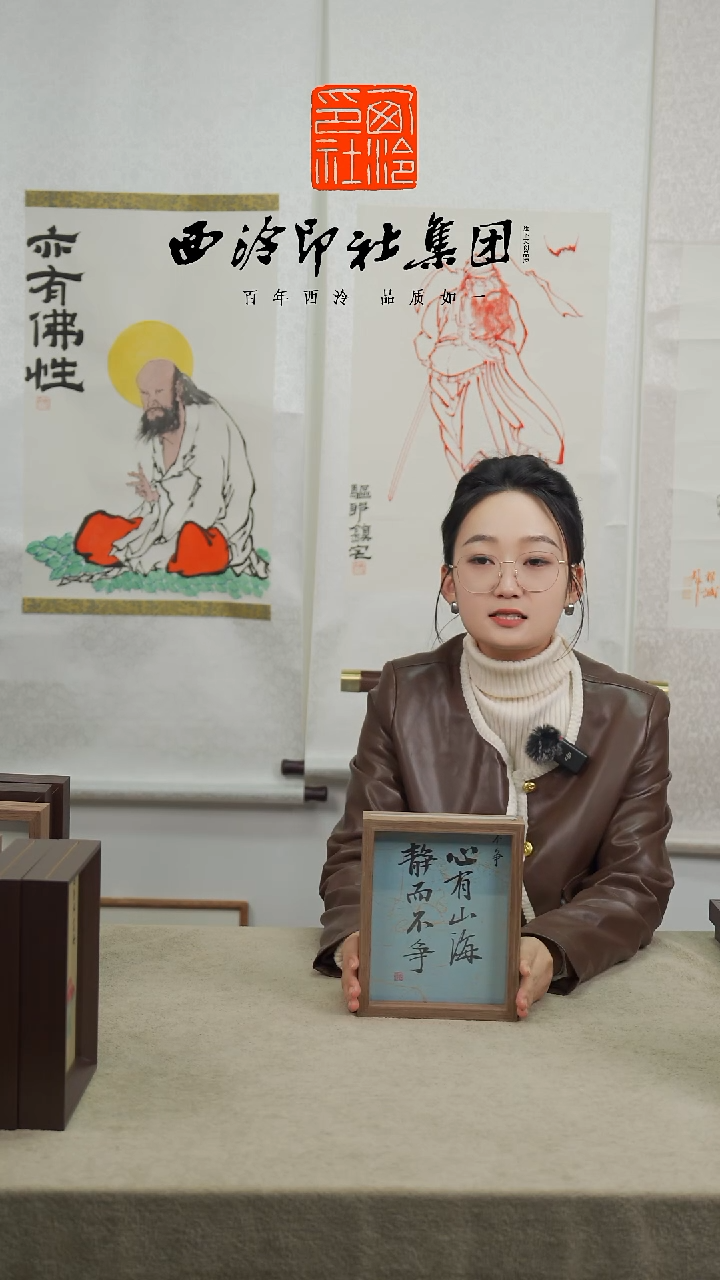 西泠印社
西泠印社集团
百年西泠 品质如一
亦有佛性
驅邪鎮宅
心有山海
静而不争
不争